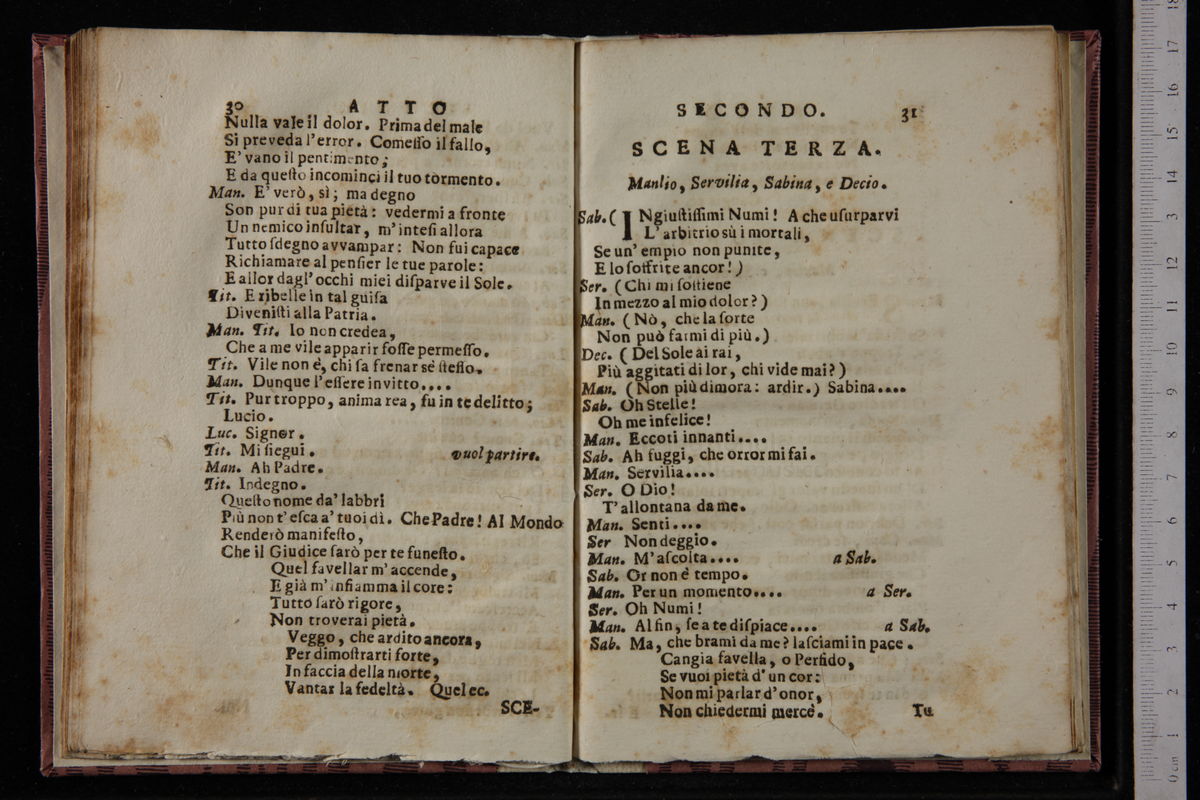 30 ATTO
Nulla vale il dolor. Prima del male
Si preveda l'error. Comeſſo il fallo,
E' vano il pentimento;
E da queſto incominci il tuo tormento.
Man. E' verò, sì; ma degno
Son pur di tua pietà: vedermi a fronte
Un nemico inſultar, m'inteſi allora
Tutto ſdegno avvampar: Non fui capace
Richiamare al penſier le tue parole:
E allor dagl'occhi miei diſparve il Sole.
Tit. E ribelle in tal guiſa
Diveniſti alla Patria.
Man. Tit. Io non credea,
Che a me vile apparir foſſe permeſſo.
Tit. Vile non è, chi ſa frenar sè ſteſſo.
Man. Dunque l'eſſere invitto....
Tit. Pur troppo, anima rea, fu in te delitto;
Lucio.
Luc. Signor.
Tit. Mi ſiegui. vuol partire.
Man. Ah Padre.
Tit. Indegno.
Queſto nome da' labbri
Più non t'eſca a' tuoi dì. Che Padre! Al Mondo
Renderò manifeſto,
Che il Giudice ſarò per te funeſto.
Quel favellar m'accende,
E già m'infiamma il core:
Tutto ſarò rigore,
Non troverai pietà.
Veggo, che ardito ancora,
Per dimoſtrarti forte,
In faccia della morte,
Vantar la fedeltà. Quel ec.
SCE-
SECONDO. 31
SCENA TERZA.
Manlio, Servilia, Sabina, e Decio.
Sab. (INgiuſtiſſimi Numi! A che uſurparvi
L'arbitrio sù i mortali,
Se un' empio non punite,
E lo ſoffrite ancor!)
Ser. (Chi mi ſoſtiene
In mezzo al mio dolor?)
Man. (Nò, che la ſorte
Non può farmi di più.)
Dec. (Del Sole ai rai,
Più aggitati di lor, chi vide mai?)
Man. (Non più dimora: ardir.) Sabina....
Sab. Oh Stelle!
Oh me infelice!
Man. Eccoti innanti....
Sab. Ah fuggi, che orror mi fai.
Man. Servilia....
Ser. O Dio!
T'allontana da me.
Man. Senti....
Ser Non deggio.
Man. M'aſcolta.... a Sab.
Sab. Or non è tempo.
Man. Per un momento.... a Ser.
Ser. Oh Numi!
Man. Al fin, ſe a te diſpiace.... a Sab.
Sab. Ma, che brami da me? laſciami in pace.
Cangia favella, o Perfido,
Se vuoi pietà d'un cor:
Non mi parlar d'onor,
Non chiedermi mercè. Tu